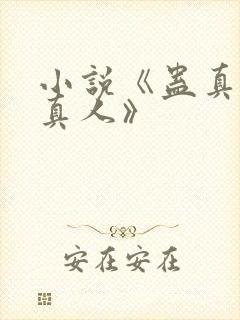 小説《蛊真
真人》
安在安在